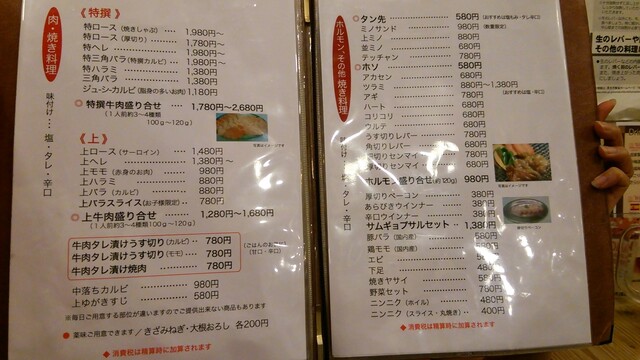 肉・焼き料理
味付け…塩・タレ・辛口
《特撰》
特ロース（焼きしゃぶ） … 1,980円〜
特ロース（厚切り） … 1,780円〜
特ヘレ … 1,980円〜
特三角バラ（特撰カルビ） … 1,980円〜
特ハラミ … 1,380円
三角バラ … 1,380円
ジューシーカルビ（脂身の多いお肉） 1,180円
◎特撰牛肉盛り合せ … 1,780円〜2,680円
（1人前約3〜4種類
100g〜120g）
《上》
上ロース（サーロイン） … 1,480円
上ヘレ … 1,380円〜
上モモ（赤身のお肉） … 880円
上ハラミ … 880円
上バラ（カルビ） … 880円
上バラスライス（お子様限定） … 780円
◎上牛肉盛り合せ … 1,280円〜1,680円
（1人前約3〜4種類100g〜120g）
牛肉タレ漬けうす切り（カルビ） … 780円
牛肉タレ漬けうす切り（モモ） … 780円
牛肉タレ漬け焼肉 … 780円
（甘口・辛口）
中落ちカルビ … 980円
上ゆがきすじ … 580円
※毎日ご用意する部位が違いますのでご提供出来ない商品もあります
● 薬味ご用意できます／きざみねぎ・大根おろし 各200円
◆ 消費税は精算時に加算されます
ホルモン、その他 焼き料理
味付け…塩・タレ・辛口
◎タン先 … 580円
ミノサンド … 980円（数量限定）
上ミノ … 880円
並ミノ … 680円
テッチャン … 780円
◎ホソ … 580円
アカセン … 680円
ツラミ … 880円〜1,380円
アギ … 780円
ハート … 680円
コリコリ … 680円
ウルテ … 680円
うす切りレバー … 780円
角切りレバー … 780円
ホルモン盛り合せ（約120g） 980円
厚切りベーコン … 380円
あらびきウインナー … 380円
辛口ウインナー … 380円
サムギョプサルセット … 1,380円
豚バラ（国内産） … 580円
鶏モモ（国内産） … 580円
エビ … 580円
下足 … 480円
焼きヤサイ … 580円
野菜セット … 780円
ニンニク（ホイル） … 480円
ニンニク（スライス・丸焼き） … 400円
◆ 消費税は精算時に加算されます